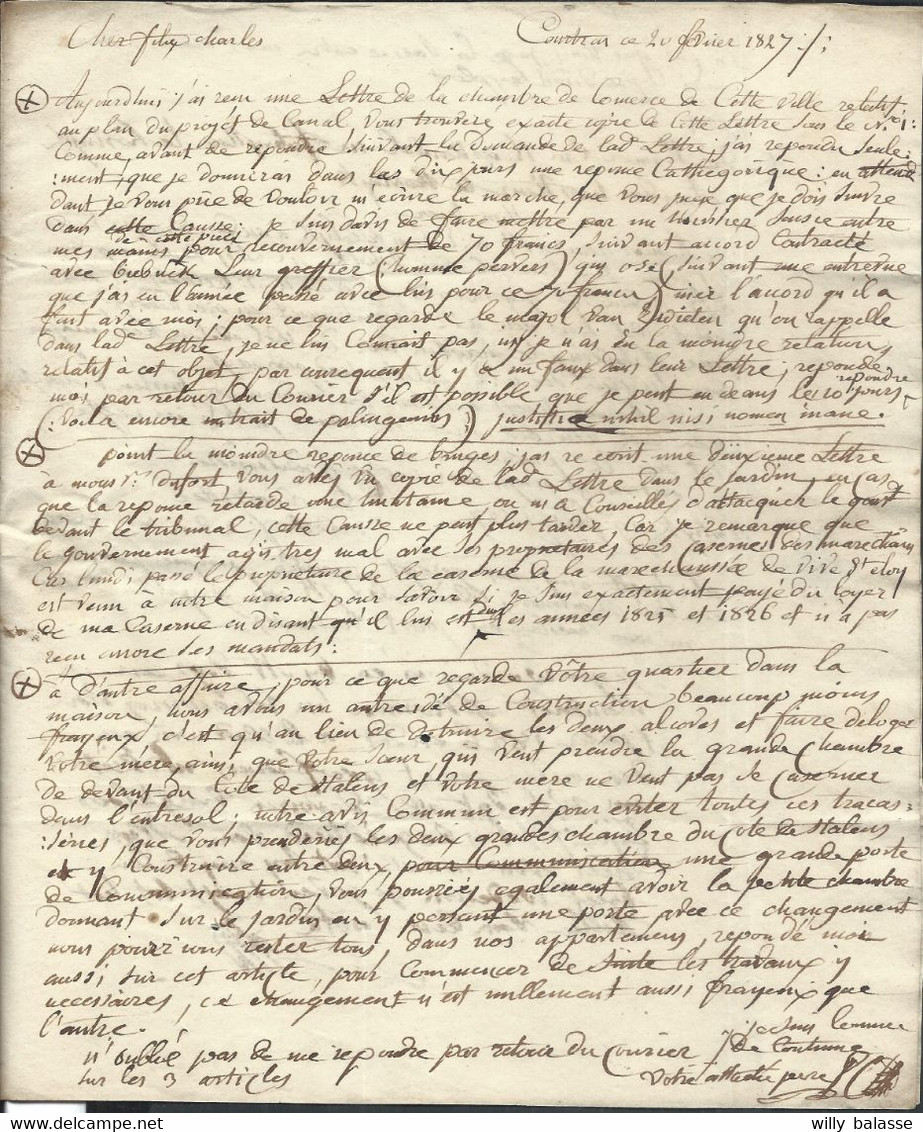 Cher fils charles Courtrai ce 20 février 1827 :/:
Aujourdhui j'ai recu une Lettre de la chambre de Comerce de Cette Ville relatif
au plan du projet de Canal, Vous trouverez exacte copie de Cette Lettre sous le N.° 1:
Comme, avant de repondre suivant la demande de lad Lettre, j'ai repondu seule:
:ment, que je donnerai dans les dix jours une reponce Cathegorique: en attend
dant je vous prie de vouloir m'ecrire la marche, que vous juge que je dois suivre
dans cette Cause; je suis d'avis de faire mettre par un huissier entre
mes mains pour recouvernement de 70 francs, suivant accord Contracté
de cette piece
avec leur greffier (homme pervers) qui osé (suivant une entrevue
que j'ai eu l'année passé avec lui pour ce 70 francs) nier l'accord qu'il a
fait avec moi; pour ce que regarde le major van qu'on appelle
dans lad Lettre, je ne lui Connait pas, ni je n'ai eu la moindre relation,
relatif à cet objet, par consequent il y a un faux dans leur Lettre, reponde
moi par retour du Courier s'il est possible que je peut en deans les 10 jours
repondre
(: voila encore un trait de :) justitia nihil nisi nomen inane.
point la moindre reponce de bruges; j'ai re ecrit une deuxieme Lettre
à mons.r Dufort vous avez un copie de lad Lettre dans le Jardin, en cas
que la reponce retarde une huitaine on m'a Conseillés d'attaquer le gouvt
devant le tribunal, cette Cause ne peut plus tarder, Car je remarque que
le gouvernement agis tres mal avec les proprietaires des Casernes des marechaus
Cas lundi passé le proprietere de la caserne de la marechaussée de Vive St eloy
est venu à notre maison pour savoir si je suis exactement payé du loyer
de ma Caserne en disant qu'il lui est dus les années 1825 et 1826 et n'a pas
reçu encore des mandats:
à d'autre affaire, pour ce que regarde vôtre quartier dans la
maison, nous avons un autre idé de Construction beaucoup moins
frayeux c'est qu'au lieu de detruire les deux alcoves et faire deloger
votre mère, ainsi que votre Sœur, qui veut prendre la grande Chambre
de devant du Cote de Stalens et votre mere ne veut pas se Caserner
dans l'entresol; notre avis Commun est pour eviter toutes ces tracas:
:series, que vous prenderiés les deux grandes chambre du Cote de Stalens
et y Construire entre deux pour Communication une grande porte
de Communication, vous pourriez egalement avoir la petite chambre
donnant sur le jardin en y persant une porte avec ce changement
nous pourrions rester tous dans nos appartemens, repondé moi
aussi sur cet article, pour Commencer de suite les travaux y
necessaires, ce changement n'est nullement aussi frayeux que
l'autre.
n'oublié pas de me repondre par retour du Courier je suis Comme
sur les 3 articles de Coutume
votre attaché pere
willy balasse